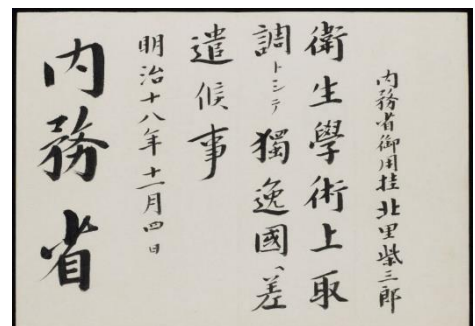 内務省御用挂北里柴三郎
衛生學術上取
調トシテ獨逸國ヘ差
遣候事
明治十八年十一月四日
内務省